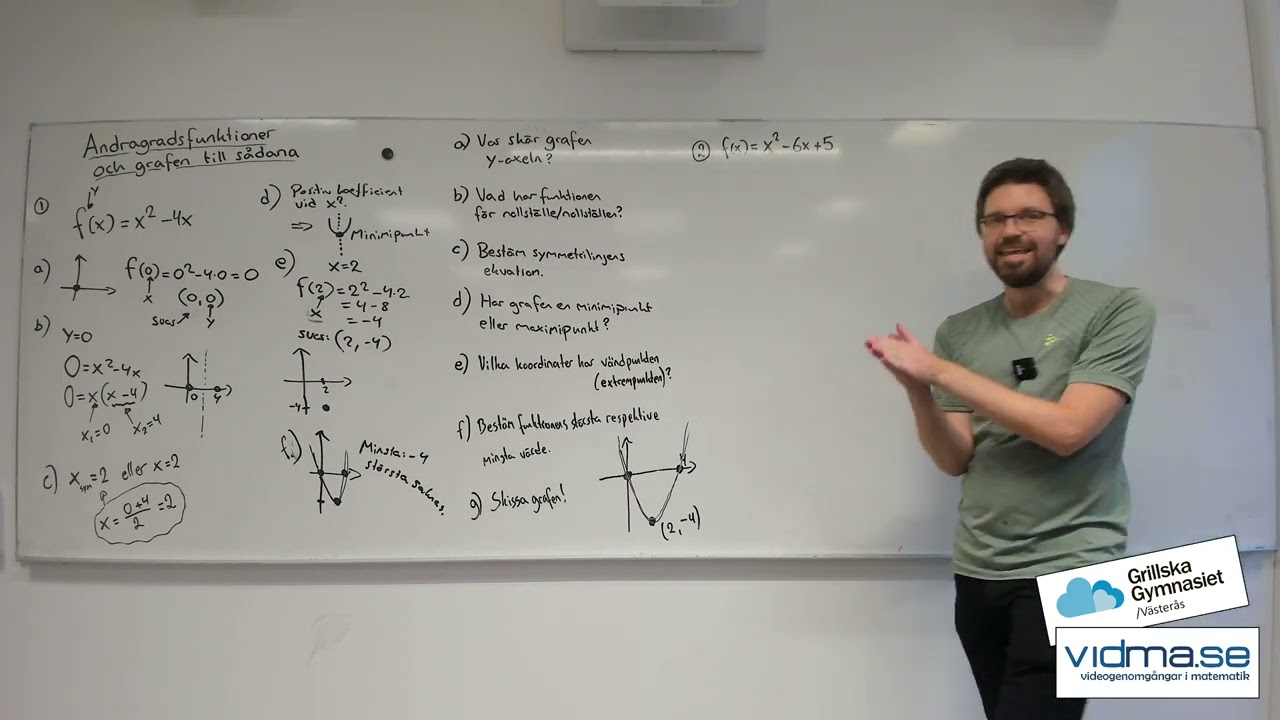 Andragradsfunktioner
och grafen till sådana
① y
f(x) = x² - 4x
a) f(0) = 0² - 4·0 = 0
x (0,0)
svar y
b) y=0
0 = x² - 4x
0 = x(x - 4)
x₁=0 x₂=4
0 4
c) x sym = 2 eller x = 2
x = (0+4)/2 = 2
d) Positiv koefficient
vid x².
⇒ Minimipunkt
x=2
e) f(2) = 2² - 4·2
x = 4 - 8
= -4
svar: (2, -4)
2
-4
f.) Minsta: -4
största saknas.
a) Var skär grafen
y-axeln?
b) Vad har funktionen
för nollställe/nollställen?
c) Bestäm symmetrilinjens
ekvation.
d) Har grafen en minimipunkt
eller maximipunkt?
e) Vilka koordinater har vändpunkten
(extrempunkten)?
f) Bestäm funktionens största respektive
minsta värde.
g) Skissa grafen!
4
(2, -4)
② f(x) = x² - 6x + 5
Grillska
Gymnasiet
/Västerås
vidma.se
videogenomgångar i matematik